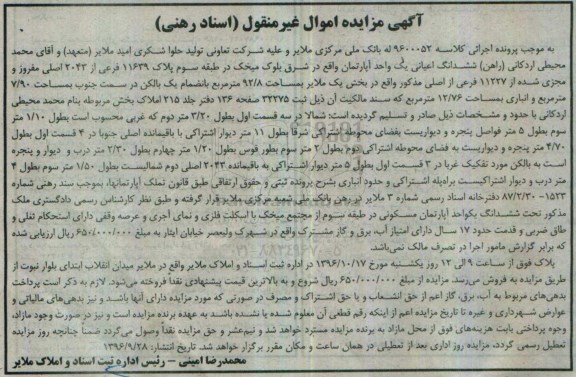 آگهی مزایده اموال غیرمنقول (اسناد رهنی)
به موجب پرونده اجرائی کلاسه ۹۶۰۰۰۵۲ له بانک ملی مرکزی ملایر و علیه شرکت تعاونی تولید حلوا شکری امید ملایر (متعهد) و آقای محمد
محیطی اردکانی (راهن) ششدانگ اعیانی یک واحد آپارتمان واقع در شرق بلوک میخک در طبقه سوم پلاک ۱۱۶۳۹ فرعی از ۲۰۴۳ اصلی مفروز و
مجزی شده از ۱۱۲۲۷ فرعی از اصلی مذکور واقع در بخش یک ملایر بمساحت ۹۲/۸ مترمربع بانضمام یک بالکن در سمت جنوب بمساحت ۷/۹۰
مترمربع و انباری بمساحت ۱۲/۷۶ مترمربع که سند مالکیت آن ذیل ثبت ۳۲۲۷۵ صفحه ۱۳۶ دفتر جلد ۲۱۵ املاک بخش مربوطه بنام محمد محیطی
اردکانی با حدود و مشخصات ذیل صادر و تسلیم گردیده است: شمالا: در سه قسمت اول بطول ۳/۲۰ متر دوم که غربی محسوب است بطول ۱/۱۰ متر
سوم بطول ۵ متر فواصل پنجره و دیواریست بفضای محوطه اشتراکی شرقا بطول ۱۱ متر دیوار اشتراکی با باقیمانده اصلی جنوبا در ۴ قسمت اول بطول
۴/۷۰ متر پنجره و دیواریست به فضای محوطه اشتراکی دوم بطول ۲ متر سوم بطور قوس بطول ۱/۲۰ متر چهارم بطول ۲/۳۰ متر درب و دیوار و پنجره
است به بالکن مورد تفکیک غربا در ۳ قسمت اول بطول ۵ متر دیوار اشتراکی به باقیمانده ۲۰۴۳ اصلی دوم شمالیست بطول ۱/۵۰ متر سوم بطول ۴
متر درب و دیوار اشتراکیست براه‌پله اشتراکی و حدود انباری بشرح پرونده ثبتی و حقوق ارتفاقی طبق قانون تملک آپارتمانها، بموجب سند رهنی شماره
۱۵۲۳- ۸۷/۲/۳۰ دفترخانه اسناد رسمی شماره ۳ ملایر در رهن بانک ملی شعبه مرکزی ملایر قرار گرفته و طبق نظر کارشناس رسمی دادگستری ملک
مذکور تحت ششدانگ یکواحد آپارتمان مسکونی در طبقه سوم از مجتمع میخک با اسکلت فلزی و نمای آجری و عرصه وقفی دارای استحکام ثقلی و
طاق ضربی و قدمت حدود ۱۷ سال دارای امتیاز آب، برق و گاز مشترک واقع در شهرک ولیعصر خیابان ایثار به مبلغ ۶۵۰/۰۰۰/۰۰۰ ریال ارزیابی شده
که برابر گزارش مامور اجرا در تصرف مالک نمی‌باشد.
پلاک فوق از ساعت ۹ الی ۱۲ روز یکشنبه مورخ ۱۳۹۶/۱۰/۱۷ در اداره ثبت اسناد و املاک ملایر واقع در ملایر میدان انقلاب ابتدای بلوار نبوت از
طریق مزایده به فروش می‌رسد. مزایده از مبلغ ۶۵۰/۰۰۰/۰۰۰ ریال شروع و به بالاترین قیمت پیشنهادی نقدا فروخته می‌شود. لازم به ذکر است پرداخت
بدهی‌های مربوط به آب، برق، گاز اعم از حق انشعاب و یا حق اشتراک و مصرف در صورتی که مورد مزایده دارای آنها باشد و نیز بدهی‌های مالیاتی و
عوارض شهرداری و غیره تا تاریخ مزایده اعم از اینکه رقم قطعی آن معلوم شده یا نشده باشد به عهده برنده مزایده است و نیز در صورت وجود مازاد،
وجوه پرداختی بابت هزینه‌های فوق از محل مازاد به برنده مزایده مسترد خواهد شد و نیم‌عشر و حق مزایده نقدا وصول می‌گردد ضمنا چنانچه روز مزایده
تعطیل رسمی گردد، مزایده روز اداری بعد از تعطیلی در همان ساعت و مکان مقرر برگزار خواهد شد. تاریخ انتشار: ۱۳۹۶/۹/۲۸
محمدرضا امینی – رئیس اداره ثبت اسناد و املاک ملایر